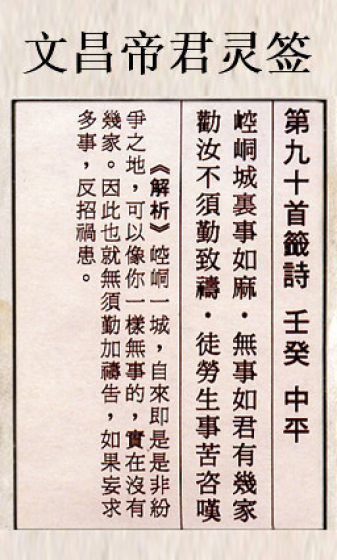 文昌帝君灵签
第九十首籤詩 壬癸 中平
崆峒城裏事如麻．無事如君有幾家
勸汝不須勤致禱．徒勞生事苦咨嘆
《解析》崆峒一城，自來即是是非紛
爭之地，可以像你一樣無事的，實在沒有
幾家。因此也就無須勤加禱告，如果妄求
多事，反招禍患。